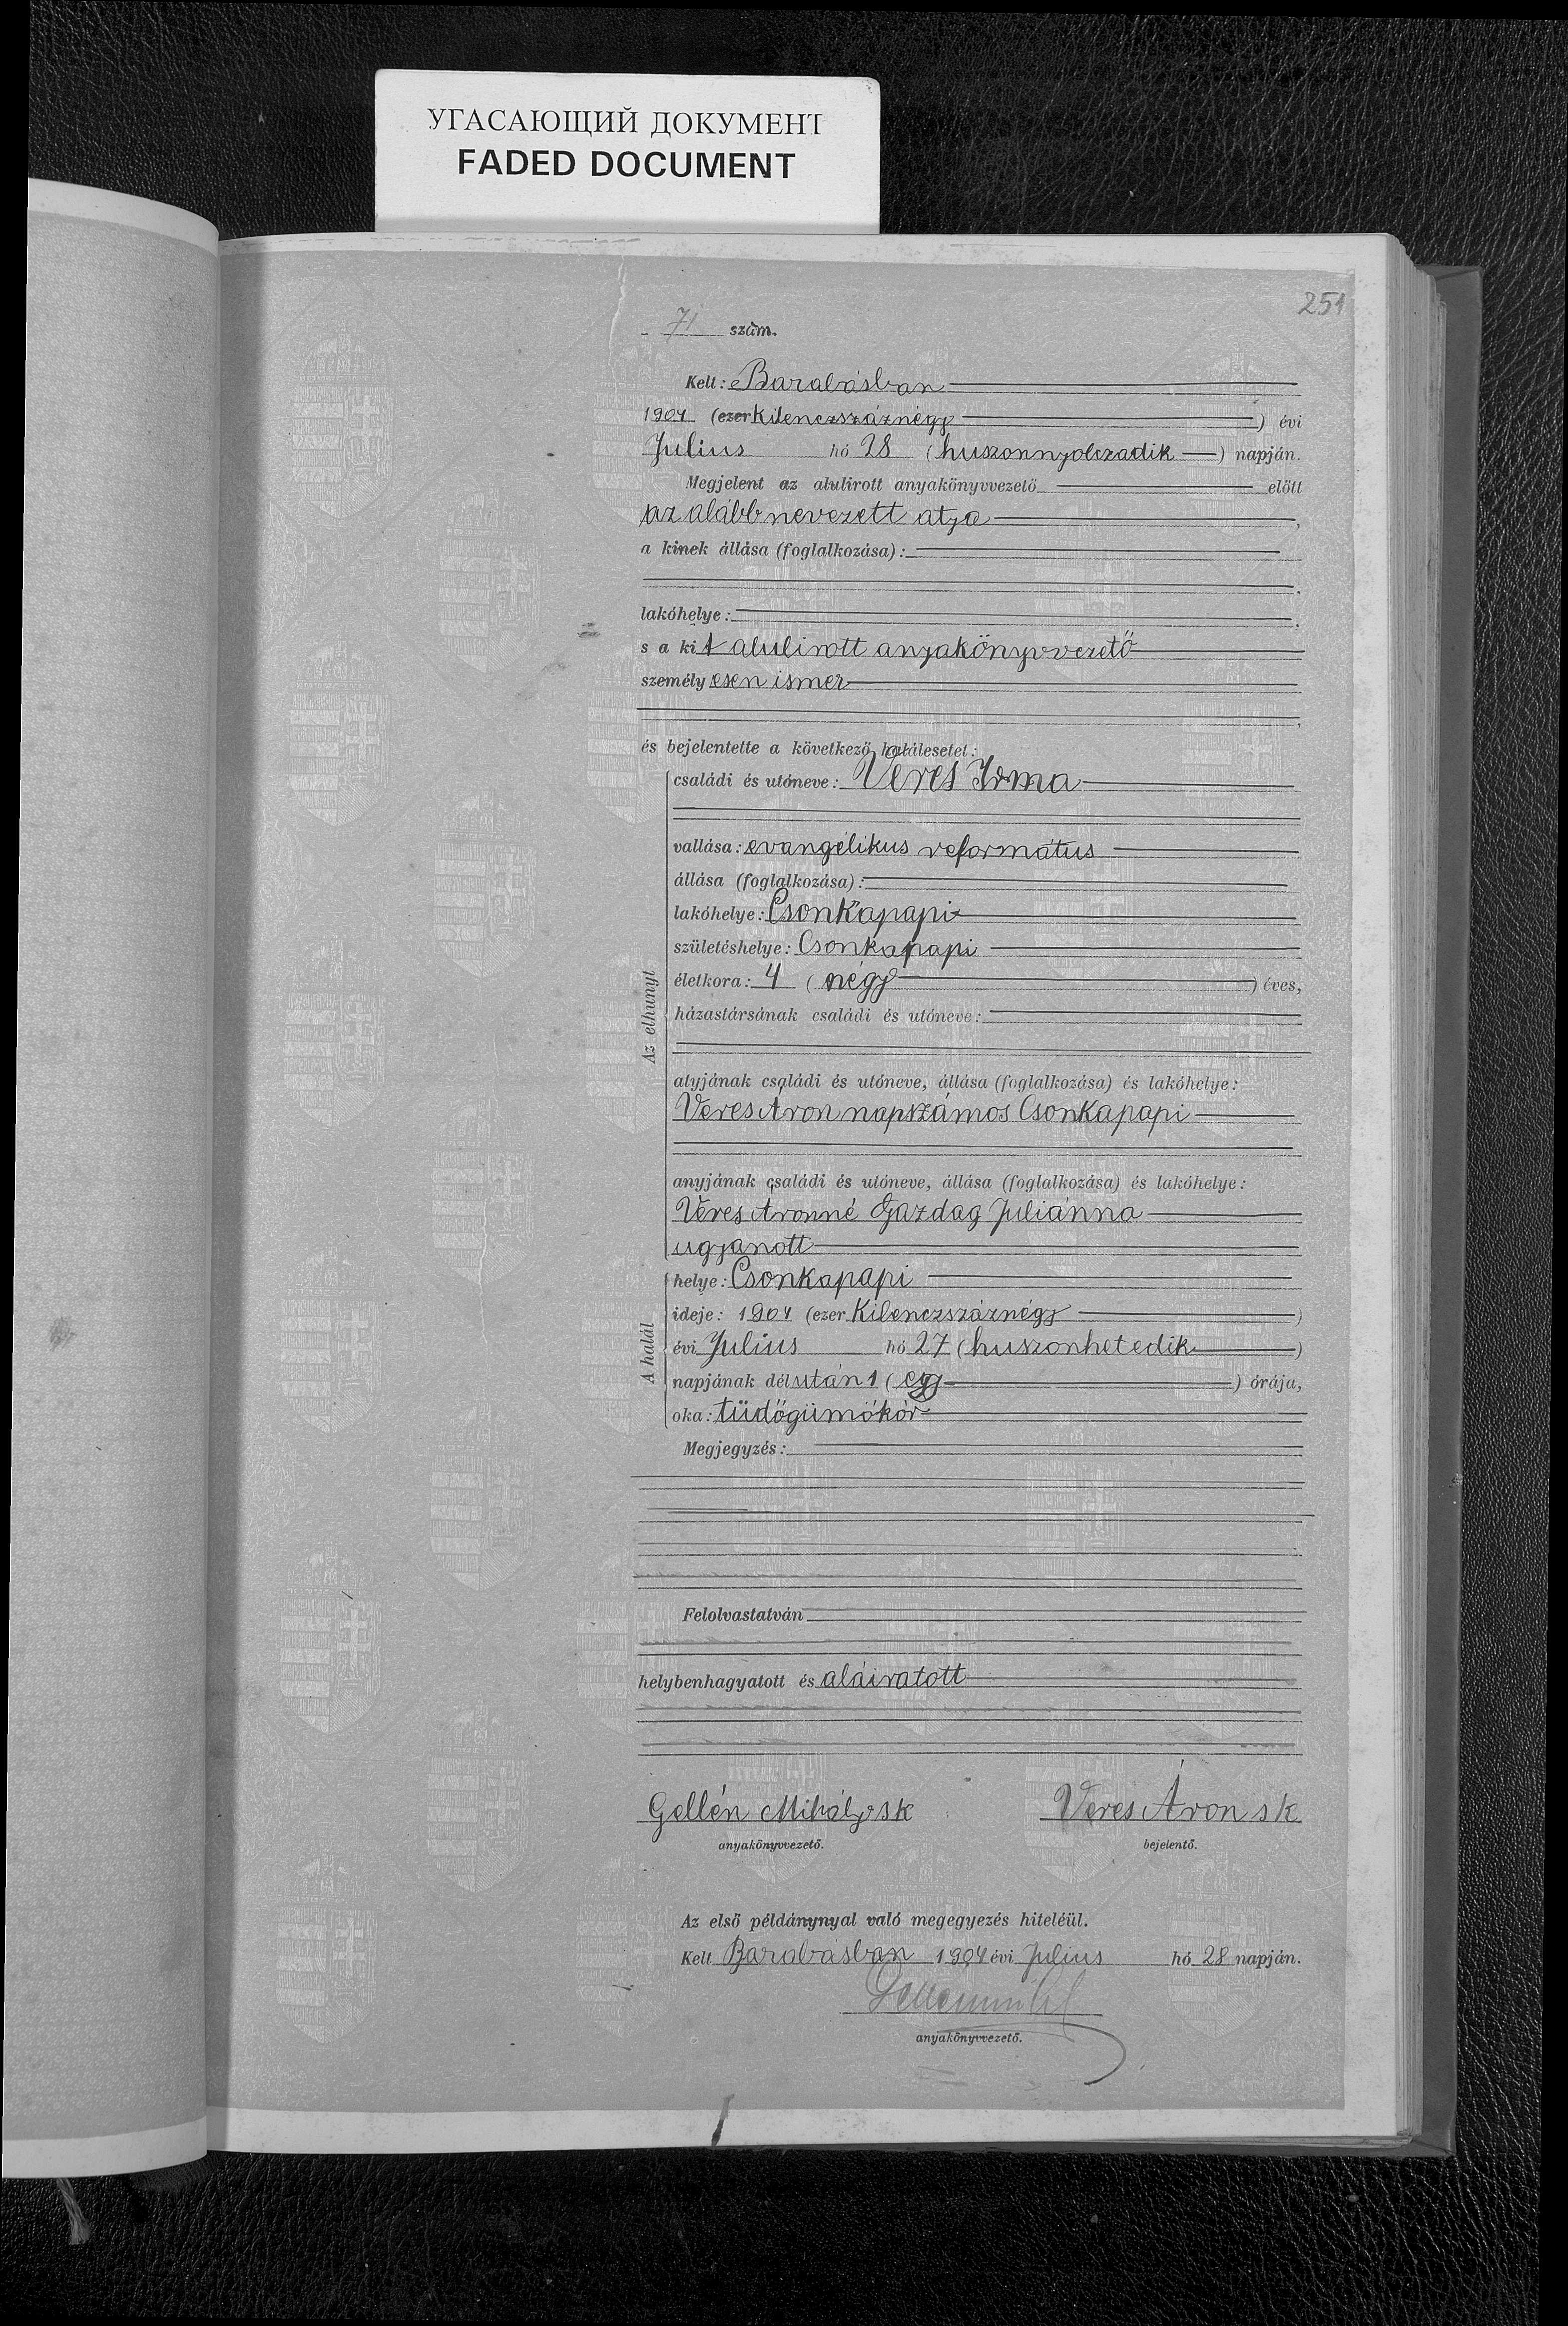 УГАСАЮЩИЙ ДОКУМЕНТ
FADED DOCUMENT
251
71 szám.
Kelt: Barabásban
1904 (ezer Kilenczszáznégy) évi
Julius hó 28 (huszonnyolczadik) napján.
Megjelent az alulirott anyakönyvvezető előtt
az alább nevezett atja,
a kinek állása (foglalkozása):
lakóhelye:
s a kit alulirott anyakönyvvezető
személyesen ismer
és bejelentette a következő halálesetet:
Az elhunyt
családi és utóneve: Veres Irma
vallása: evangélikus református
állása (foglalkozása):
lakóhelye: Csonkapapi
születéshelye: Csonkapapi
életkora: 4 (négy) éves,
házastársának családi és utóneve:
atyjának családi és utóneve, állása (foglalkozása) és lakóhelye:
Veres Áron napszámos Csonkapapi
anyjának családi és utóneve, állása (foglalkozása) és lakóhelye:
Veres Aronné Gazdag Juliánna
ugyanott
A halál
helye: Csonkapapi
ideje: 1904 (ezer Kilenczszáznégy)
évi Julius hó 27 (huszonhetedik)
napjának délután 1 (egy) órája,
oka: tüdőgümőkór
Megjegyzés:
Felolvastatván
helybenhagyatott és aláiratott
Gellén Mihály sk Veres Áron sk
anyakönyvvezető. bejelentő.
Az első példánynyal való megegyezés hiteléül.
Kelt Barabásban 1904 évi Julius hó 28 napján.
anyakönyvvezető.